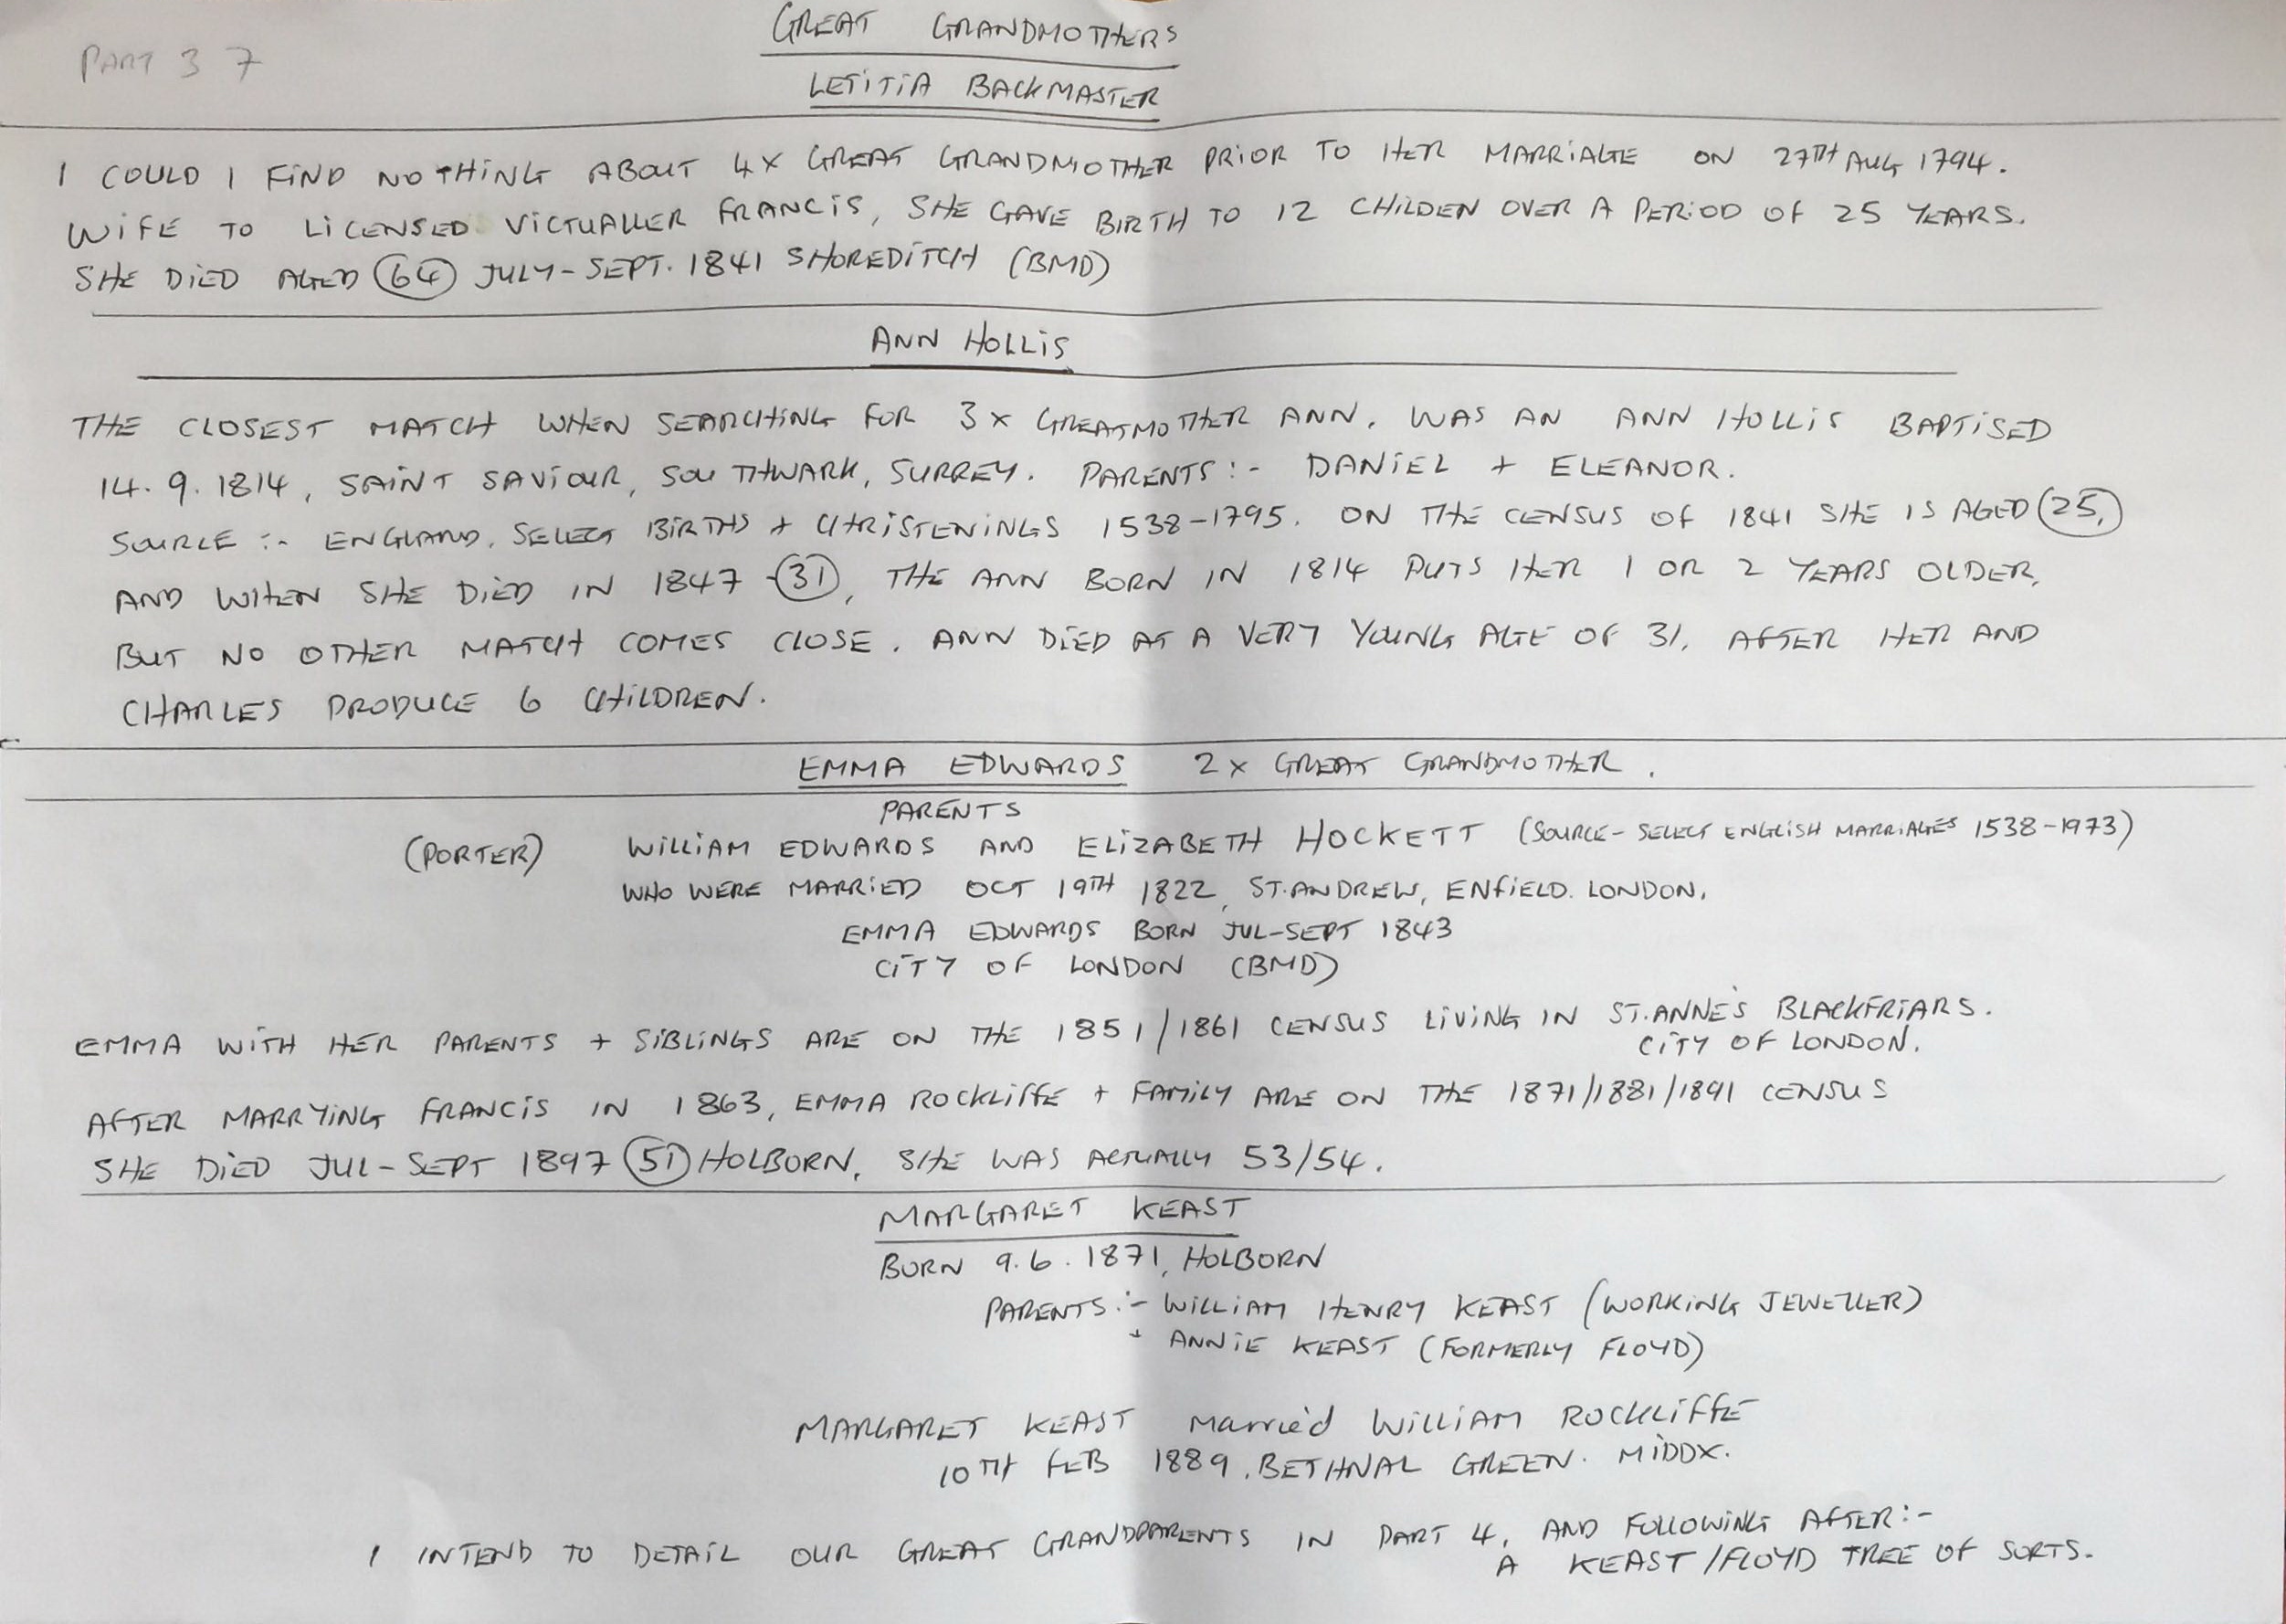 GREAT GRANDMOTHERS
PART 3 7
LETITIA BACKMASTER
I COULD I FIND NOTHING ABOUT 4X GREAT GRANDMOTHER PRIOR TO HER MARRIAGE ON 27TH AUG 1794.
WIFE TO LICENSED VICTUALLER FRANCIS, SHE GAVE BIRTH TO 12 CHILDEN OVER A PERIOD OF 25 YEARS.
SHE DIED AGED 64 JULY-SEPT. 1841 SHOREDITCH (BMD)
ANN HOLLIS
THE CLOSEST MATCH WHEN SEARCHING FOR 3X GREATMOTHER ANN. WAS AN ANN HOLLIS BAPTISED
14.9.1814, SAINT SAVIOUR, SOUTHWARK, SURREY. PARENTS:- DANIEL + ELEANOR.
SOURCE:- ENGLAND. SELECT BIRTHS + CHRISTENINGS 1538-1795. ON THE CENSUS OF 1841 SHE IS AGED 25,
AND WHEN SHE DIED IN 1847 - 31, THE ANN BORN IN 1814 PUTS HER 1 OR 2 YEARS OLDER,
BUT NO OTHER MATCH COMES CLOSE. ANN DIED AT A VERY YOUNG AGE OF 31, AFTER HER AND
CHARLES PRODUCE 6 CHILDREN.
EMMA EDWARDS 2X GREAT GRANDMOTHER.
PARENTS
(PORTER) WILLIAM EDWARDS AND ELIZABETH HOCKETT (SOURCE-SELECT ENGLISH MARRIAGES 1538-1973)
WHO WERE MARRIED OCT 19TH 1822, ST.ANDREW, ENFIELD. LONDON.
EMMA EDWARDS BORN JUL-SEPT 1843
CITY OF LONDON (BMD)
EMMA WITH HER PARENTS + SIBLINGS ARE ON THE 1851/1861 CENSUS LIVING IN ST.ANNE'S BLACKFRIARS.
CITY OF LONDON.
AFTER MARRYING FRANCIS IN 1863, EMMA ROCKLIFFE + FAMILY ARE ON THE 1871/1881/1891 CENSUS
SHE DIED JUL-SEPT 1897 51 HOLBORN, SHE WAS ACTUALLY 53/54.
MARGARET KEAST
BORN 9.6.1871, HOLBORN
PARENTS:- WILLIAM HENRY KEAST (WORKING JEWELLER)
+ ANNIE KEAST (FORMERLY FLOYD)
MARGARET KEAST married WILLIAM ROCKLIFFE
10TH FEB 1889, BETHNAL GREEN. MIDDX.
I INTEND TO DETAIL OUR GREAT GRANDPARENTS IN PART 4, AND FOLLOWING AFTER:-
A KEAST/FLOYD TREE OF SORTS.